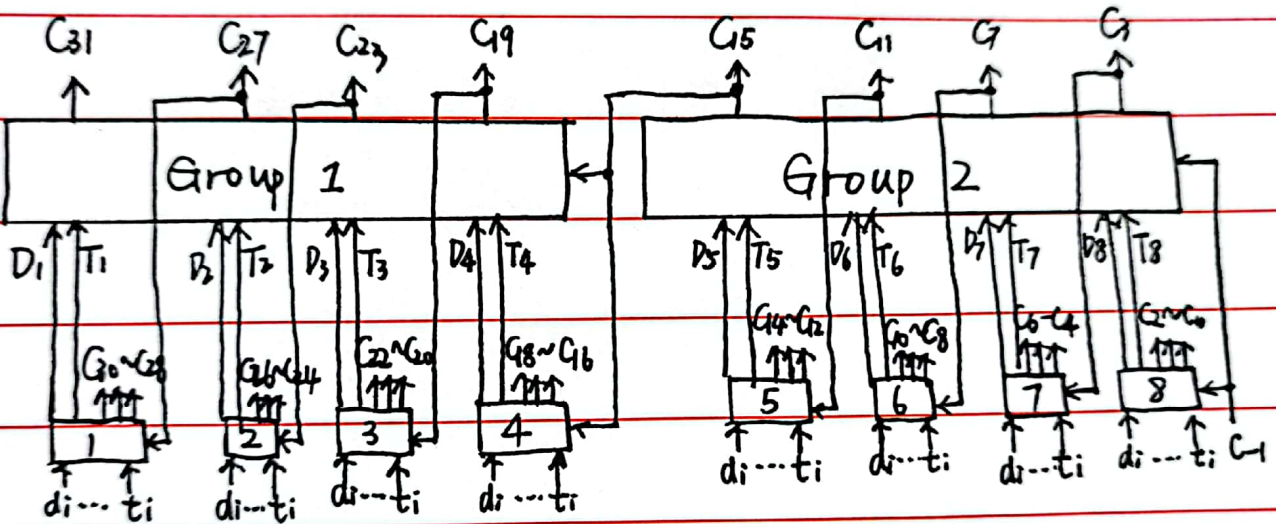 C31 C27 C23 C19 C15 C11 C7 C3
Group 1 Group 2
D1 T1 D2 T2 D3 T3 D4 T4 D5 T5 D6 T6 D7 T7 D8 T8
C30~C28 C26~C24 C22~C20 C18~C16 C14~C12 C10~C8 C6~C4 C2~C0
1 2 3 4 5 6 7 8
di...ti di...ti di...ti di...ti di...ti di...ti di...ti di...ti C-1